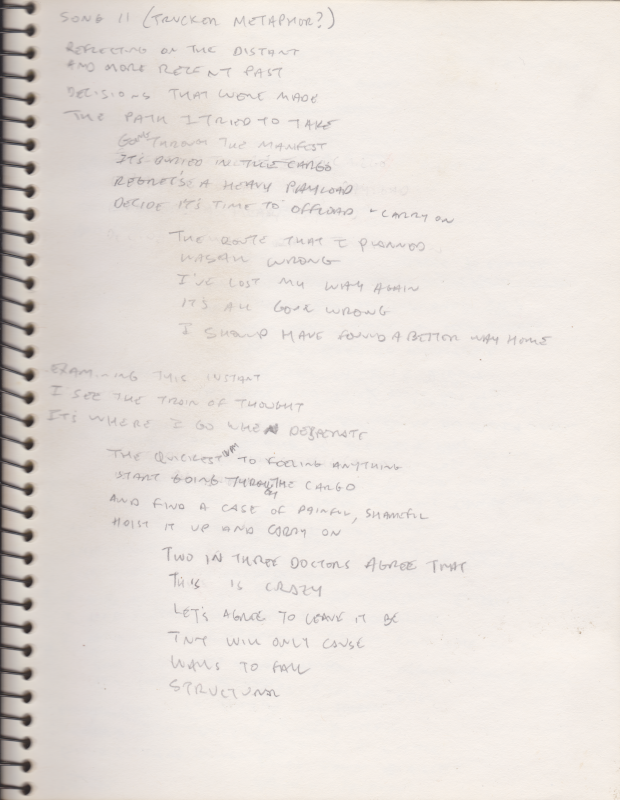 SONG 11 (TRUCKER METAPHOR?)
REFLECTING ON THE DISTANT
AND MORE RECENT PAST
DECISIONS THAT WERE MADE
THE PATH I TRIED TO TAKE
GO THROUGH THE MANIFEST
IT'S BURIED IN THE CARGO
REGRET'S A HEAVY PAYLOAD
DECIDE IT'S TIME TO OFFLOAD + CARRY ON
THE ROUTE THAT I PLANNED
WRONG
I'VE LOST MY WAY AGAIN
IT'S ALL GONE WRONG
I SHOULD HAVE FOUND A BETTER WAY HOME
EXAMINING THIS INSTANT
I SEE THE TRAIN OF THOUGHT
IT'S WHERE I GO WHEN DESPERATE
THE QUICKEST WAY TO FEELING ANYTHING
START GOING THROUGH THE CARGO
AND FIND A CASE OF PAINFUL, SHAMEFUL
HOIST IT UP AND CARRY ON
TWO IN THREE DOCTORS AGREE THAT
THIS IS CRAZY
LET'S AGREE TO LEAVE IT BE
TNT WILL ONLY CAUSE
WALLS TO FALL
STRUCTURAL